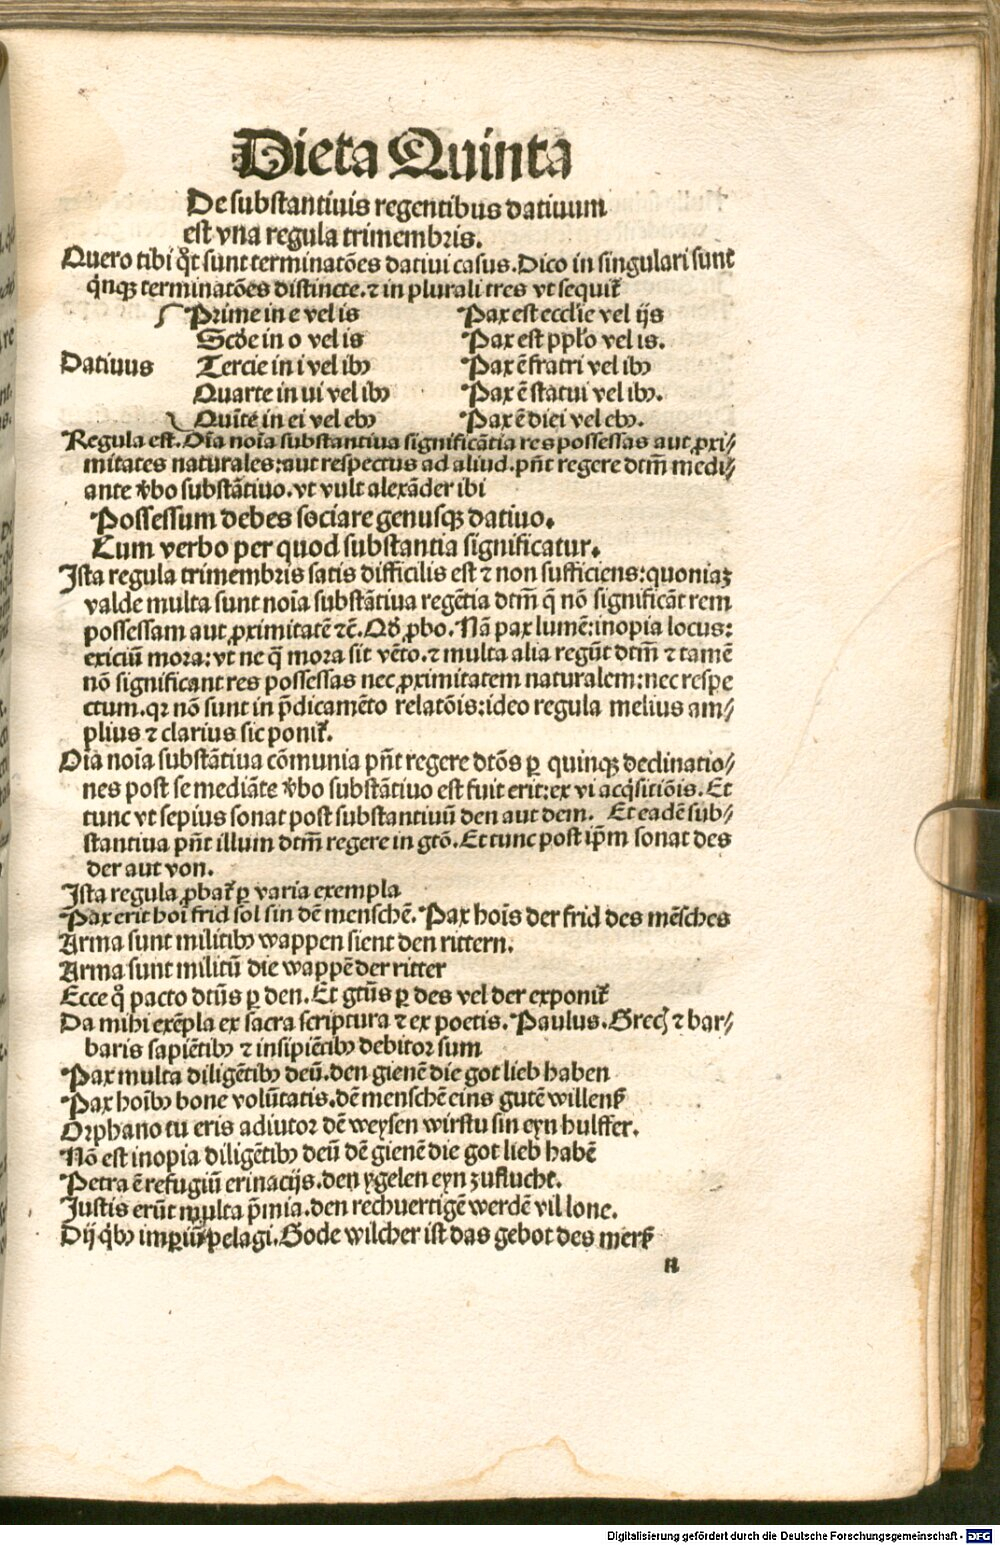 Dieta Quinta
De substantiuis regentibus datiuum
est vna regula trimembris.
Quero tibi qͦt sunt terminatões datiui casus. Dico in singulari sunt
qͥnqꝫ terminatões distincte. ⁊ in plurali tres vt sequit᷑
Prime in e vel is Pax est ecclie vel ijs
Scðe in o vel is Pax est pplo vel is.
Datiuus Tercie in i vel ibꝰ Pax ē fratri vel ibꝰ
Quarte in ui vel ibꝰ Pax ē statui vel ibꝰ.
Quīte in ei vel ebꝰ Pax ē diei vel ebꝰ.
Regula est. Oīa noīa substantiua significātia res possessas aut ꝓxi⸗
mitates naturales: aut respectus ad aliud. pñt regere dtm̄ medi⸗
ante v̓bo substātiuo. vt vult alexāder ibi
Possessum debes sociare genusqꝫ datiuo.
Cum verbo per quod substantia significatur.
Ista regula trimembris satis difficilis est ⁊ non sufficiens: quoniaꝫ
valde multa sunt noīa substātiua regētia dtm̄ q̄ nō significāt rem
possessam aut ꝓximitatē ⁊c̄. Qð ꝓbo. Nā pax lumē: inopia locus:
exiciū mora: vt ne q̄ mora sit vēto. ⁊ multa alia regūt dtm̄ ⁊ tamē
nō significant res possessas nec ꝓximitatem naturalem: nec respe
ctum. qꝛ nō sunt in p̄dicamēto relatōis: ideo regula melius am⸗
plius ⁊ clarius sic ponit᷑.
Oīa noīa substātiua cōmunia pñt regere dtōs ꝑ quinqꝫ declinatio⸗
nes post se mediāte v̓bo substātiuo est fuit erit: ex vi acqͥsitiōis. Et
tunc vt sepius sonat post substantiuū den aut dem. Et eadē sub⸗
stantiua pñt illum dtm̄ regere in gtō. Et tunc post ip̄m sonat des
der aut von.
Ista regula ꝓbat᷑ ꝑ varia exempla
Pax erit hoī frid sol sin dē menschē. Pax hoīs der frid des mēsches
Arma sunt militibꝰ wappen sient den rittern.
Arma sunt militū die wappē der ritter
Ecce qͦ pacto dtūs ꝑ den. Et gtūs ꝑ des vel der exponit᷑
Da mihi exēpla ex sacra scriptura ⁊ ex poetis. Paulus. Grecꝭ ⁊ bar⸗
baris sapiētibꝰ ⁊ insipiētibꝰ debitor sum
Pax multa diligētibꝰ deū. den gienē die got lieb haben
Pax hoībꝰ bone volūtatis. dē menschē eins gutē willens
Orphano tu eris adiutor dē weysen wirstu sin eyn hulffer.
Nō est inopia diligētibꝰ deū dē gienē die got lieb habē
Petra ē refugiū erinacijs. den ygelen eyn zuflucht.
Justis erūt multa p̄mia. den rechuertigē werdē vil lone.
Dij qͥbꝰ imꝑiū pelagi. Gode wilcher ist das gebot des mers
n
Digitalisierung gefördert durch die Deutsche Forschungsgemeinschaft - DFG